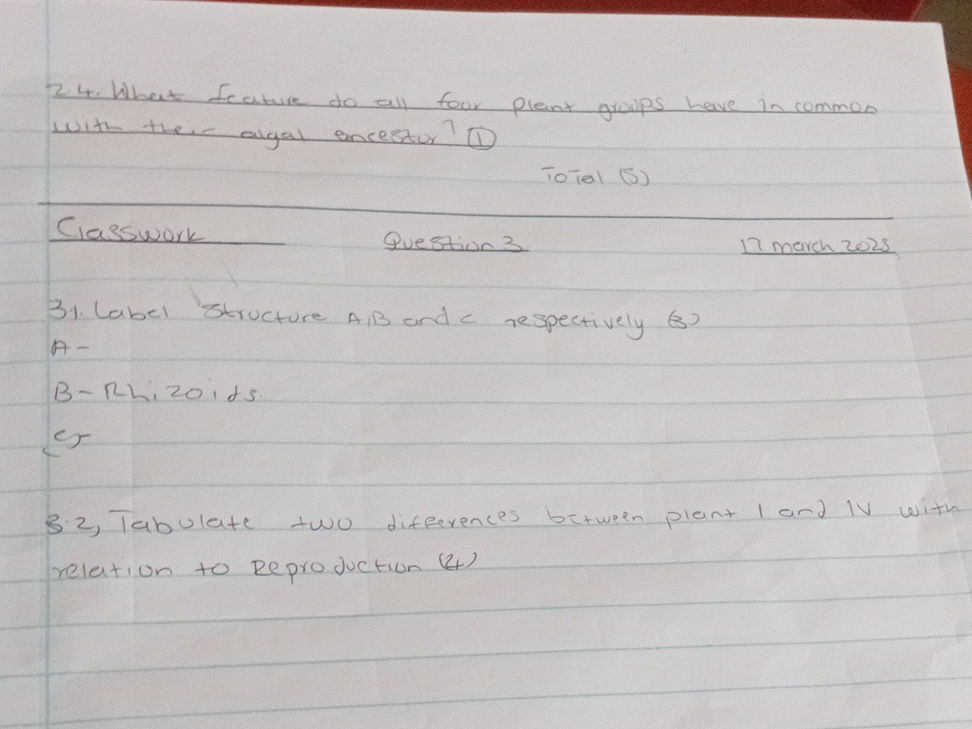 2.4. What feature do all four plant groups have in common
with their algal ancestor? (1)
Total (5)
Classwork Question 3 17 march 2025
3.1. Label Structure A, B and C respectively (3)
A -
B - Rhizoids.
C -
3.2, Tabulate two differences between plant I and IV with
relation to Reproduction (4)